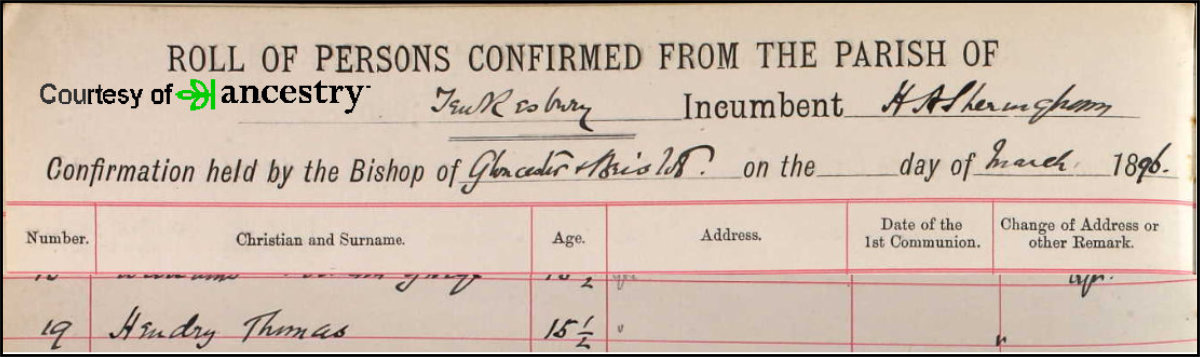 ROLL OF PERSONS CONFIRMED FROM THE PARISH OF
Courtesy of ancestry
Tewkesbury Incumbent H A Sheringham
Confirmation held by the Bishop of Gloucester & Bristol. on the day of March. 1896.
Number. Christian and Surname. Age. Address. Date of the 1st Communion. Change of Address or other Remark.
19 Hendry Thomas 15 1/2 "